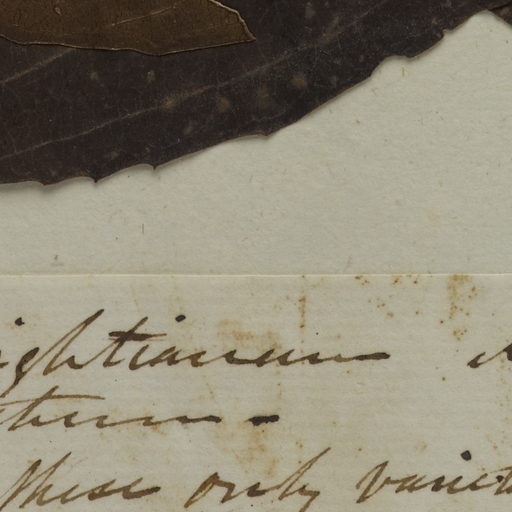 ightianum
tum -
these only variet